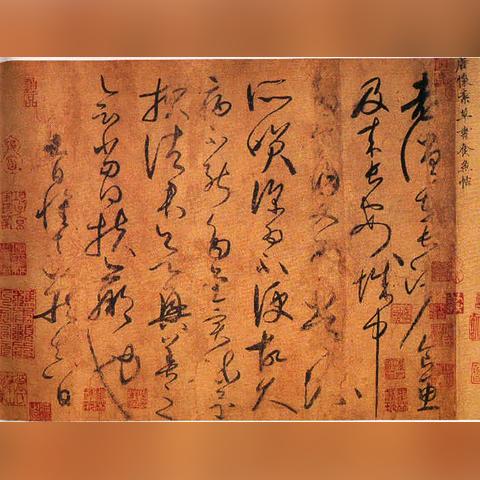 唐懷素草書食魚帖
老僧在長沙食魚
及來長安城中
多食肉又為常流
所笑深為不便故久
病不能多書實疎還
報諸君欲興善之
會當得扶羸也
九日懷素藏真白